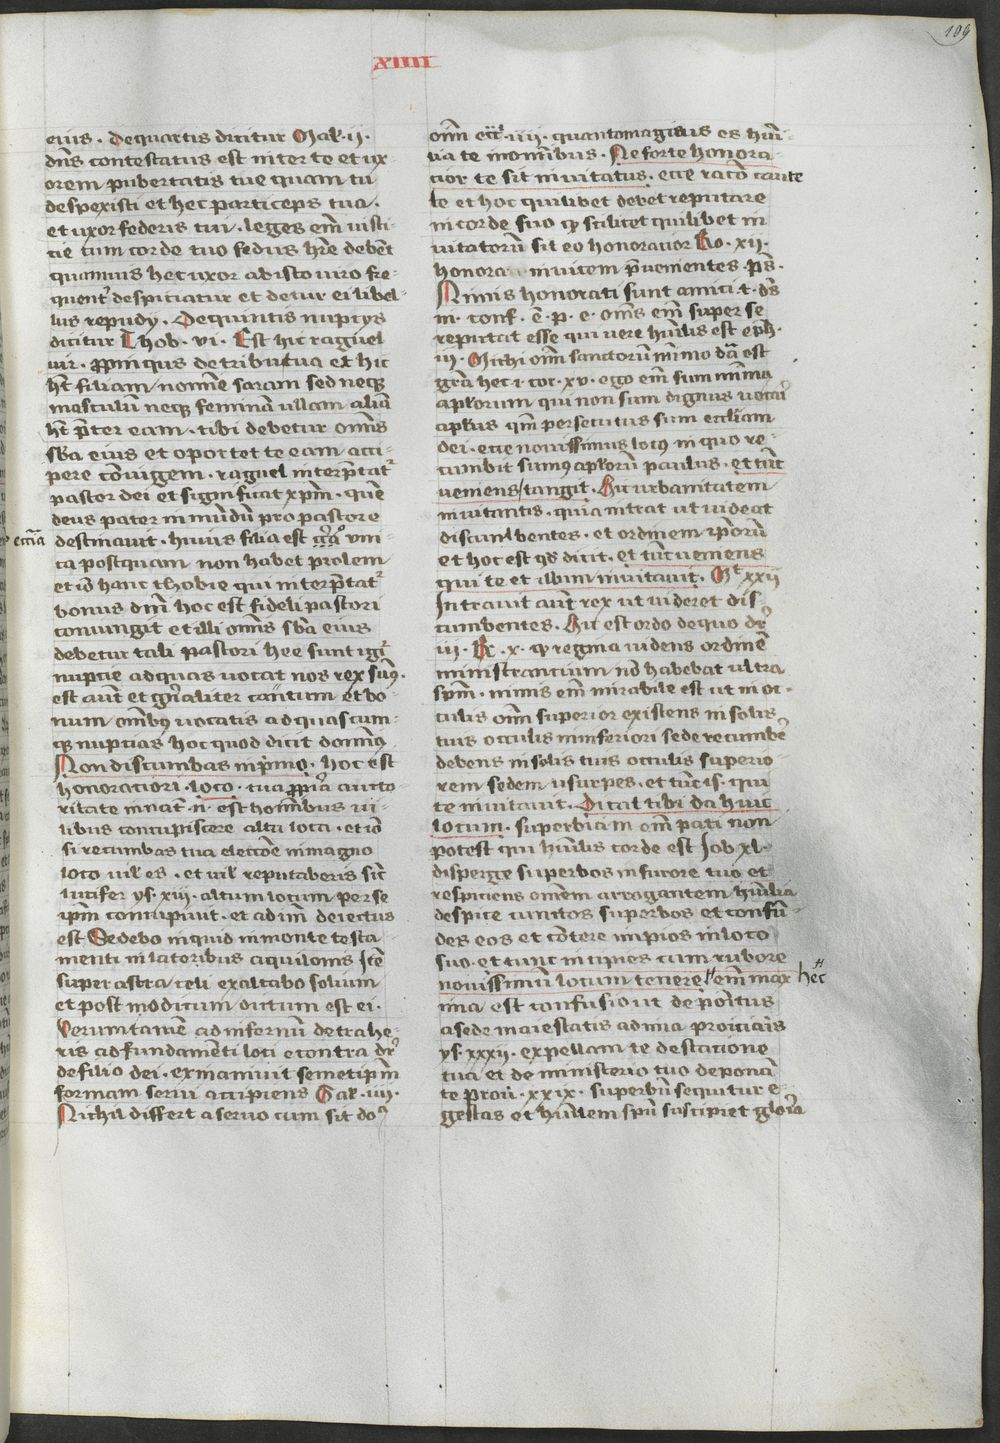 109
XIIII
eius . De quartis dicitur Mal . ii .
dns contestatus est inter te et ux-
orem pubertatis tue quam tu
despexisti et hec particeps tua .
et uxor federis tui . leges em iusti-
cie cum corde tuo fedus hre debent
quamuis hec uxor ab isto uiro fre-
quent despiciatur et detur ei libel-
lus repudy . De quintis nuptys
dicitur Thob . vi . Est hic raguel
uir . ppinqus de tribu tua et hic
ht filiam nomine saram sed neq
masculu neq femina ullam alia
ht preter eam . tibi debetur omis
sba eius et oportet te eam acci-
pere coniugem . raguel interptat
pastor dei et significat xpm . que
deus pater in mundu pro pastore
eccia
destinauit . huius filia est gra vni-
ca postquam non habet prolem
et io hanc thobie qui interptat
bonus dni hoc est fideli pastori
coniungit et illi omis sba eius
debetur tali pastori hee sunt igi
nuptie ad quas uocat nos rex sum .
est aut et gnaliter cautum et bo-
num omibus uocatis ad quascum-
q nuptias hoc quod dicit domin
Non discumbas in pmo . hoc est
honoratiori . loco . tua ppia aucto
ritate innat . n . est hominibus ui-
libus concupiscere alta loca . et io
si recumbas tua eleccoe in magno
loco uil es . et uil reputaberis sic
lucifer ys . xiii . altum locum per se
ipm concupiuit . et ad im deiectus
est Sedebo inquid in monte testa
menti in lateribus aquilonis Ite
super astra celi exaltabo solium
et post modicum dictum est ei .
Verumtame ad infernu detrahe-
ris ad fundamenti loci econtra dr
de filio dei . exinaniuit semetipm
formam serui accipiens Gal . iiii .
Nichil differt a seruo cum sit do
oim ecc . iiii . quanto magnus es humi-
lia te in omibus . Ne forte honora
cior te sit inuitatus . ecce raco caute
le et hoc quilibet debet reputare
in corde suo q scilicet quilibet in
uitatoru sit eo honoratior Ro . xii .
honore inuicem preuenientes . ps .
Nimis honorati sunt amici t . ds
ni . conf . e . p . e . omes em super se
reputat esse qui uere humilis est eph .
iii . Michi oim sanctoru minimo da est
gra hec i . cor . xv . ego em sum minima
aplorum qui non sum dignus uocari
aplus qm persecutus sum eccliam
dei . ecce nouissimus locus in quo re-
cumbit sumus aploru paulus . et tuc
ueniens / tangit . hic urbanitatem
inuitantis . quia intrat ut uideat
discumbentes . et ordinem iporu
et hoc est qd dicit . et tuc ueniens
qui te et illum inuitauit . Mt xxii
Intrauit aut rex ut uideret dis-
cumbentes . hic est ordo de quo dr
iii . Re . x . q regina uidens ordine
ministrancium no habebat ultra
spm . nimis em mirabile est ut in oc-
culis oim superior existens in solis
tuis occulis in inferiori sede recumbe
debens in solis tuis occulis superio-
rem sedem usurpes . et tuc is . qui
te inuitauit . Dicat tibi da huic
locum . superbiam em pati non
potest qui humilis corde est Job xl .
disperge superbos in furore tuo et
respiciens omem arrogantem humilia
despice cunctos superbos et confun-
des eos et contere impios in loco
suo . et tunc incipies cum rubore
nouissimu locum tenere em max hec
ima est confusio ut de poitus
a sede maiestatis ad ima proiciaris
ys . xxxii . expellam te de stacione
tua et de ministerio tuo deponam
te prou . xxix . superbu sequitur e-
gestas et humilem spu suscipiet gloria